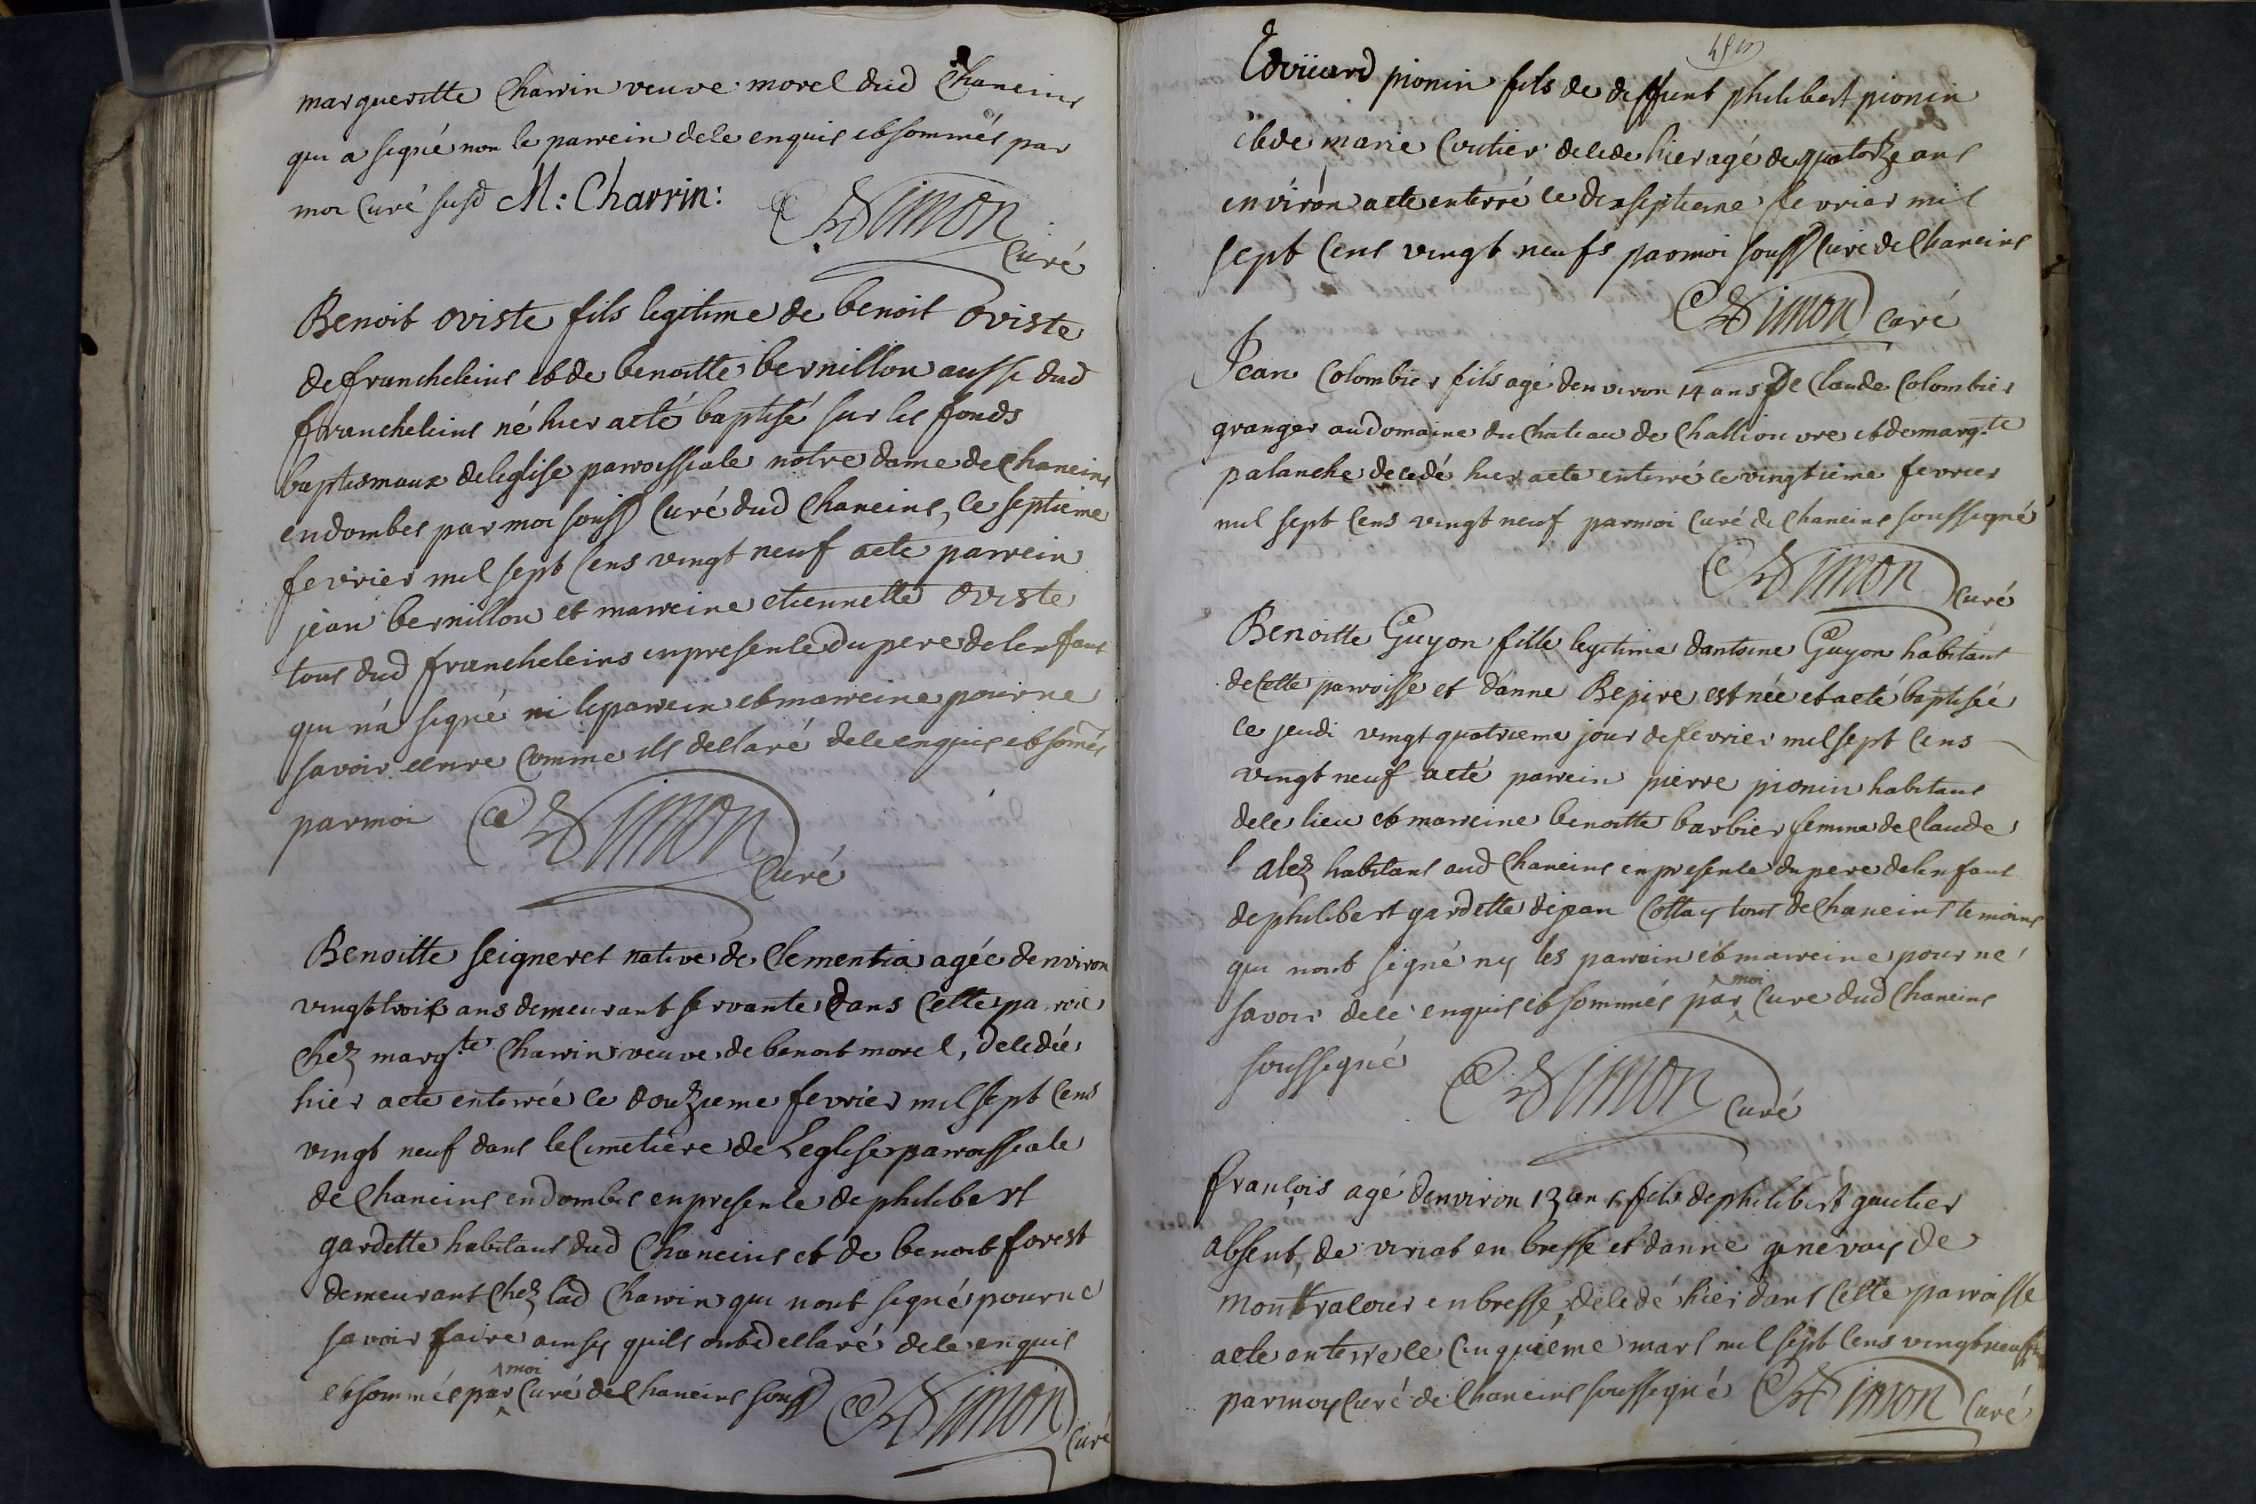 margueritte Charrin veuve morel dud Chaneins
qui a signé non le parrein de ce enquis et sommés par
moi Curé susd M: Charrin:
Simon
Curé
Benoit oviste fils legitime de benoit oviste
de francheleins et de benoitte bernillon aussi dud
francheleins né hier a eté baptisé sur les fonds
baptismaux de leglise parroissiale notre dame de Chaneins
en dombes par moi souss Curé dud Chaneins, ce septieme
fevrier mil sept Cens vingt neuf a ete parrein
jean bernillon et marreine etiennette oviste
tous dud francheleins en presence du pere de lenfant
qui n'a signé ni le parrein et marreine pour ne
savoir ecrire Comme ils declaré de ce enquis et somés
par moi Simon
Curé
Benoitte seigneret native de Clementia agée denviron
vingt trois ans demeurant servante dans Cette paroic
Chez margte Charrin veuve de benoit morel, decedée
hier a ete enterrée ce douzieme fevrier mil sept Cens
vingt neuf dans le Cimetiere de Leglise parroissiale
de Chaneins en dombes en presence de philibert
gardette habitant dud Chaneins et de benoit forest
demeurant Chez lad Charrin qui n'ont signé pour ne
savoir faire ainsy quils ont declaré de ce enquis
et sommés par moi Curé de Chaneins souss Simon
Curé
Edoüard pionin fils de deffunt philibert pionin
et de marie Cutier decede hier agé de quatorze ans
environ a ete enterré ce dixseptieme fevrier mil
sept Cens vingt neufs par moi souss Curé de Chaneins
Simon Curé
Jean Colombier fils agé denviron 14 ans De Claude Colombier
granger au domaine du Chateau de Challiouvre et de margte
palanche decedé hier a ete enterré ce vingtieme fevrier
mil sept Cens vingt neuf par moi Curé de Chaneins soussigné
Simon Curé
Benoitte Guyon fille legitime dantoine Guyon habitant
de Cette parroisse et d'anne Repire est née et a eté baptisée
ce jeudi vingt quatrieme jour de fevrier mil sept Cens
vingt neuf a eté parrein pierre pionin habitant
de ce lieu et marreine benoitte barbier femme de Claude
alez habitant aud Chaneins en presence du pere de lenfant
de philibert gardette de jean Cottay tous de Chaneins temoins
qui n'ont signé ny les parrain et marreine pour ne
savoir de ce enquis et sommés par moi Curé dud Chaneins
soussigné Simon Curé
françois agé denviron 13 ans fils de philibert gautier
absent, de viriat en bresse et danne genevois de
Montralouer en bresse, decedé hier dans Cette parroisse
a ete enterré ce Cinquiéme mars mil sept Cens vingt neuf
par moy Curé de Chaneins soussigné Simon Curé